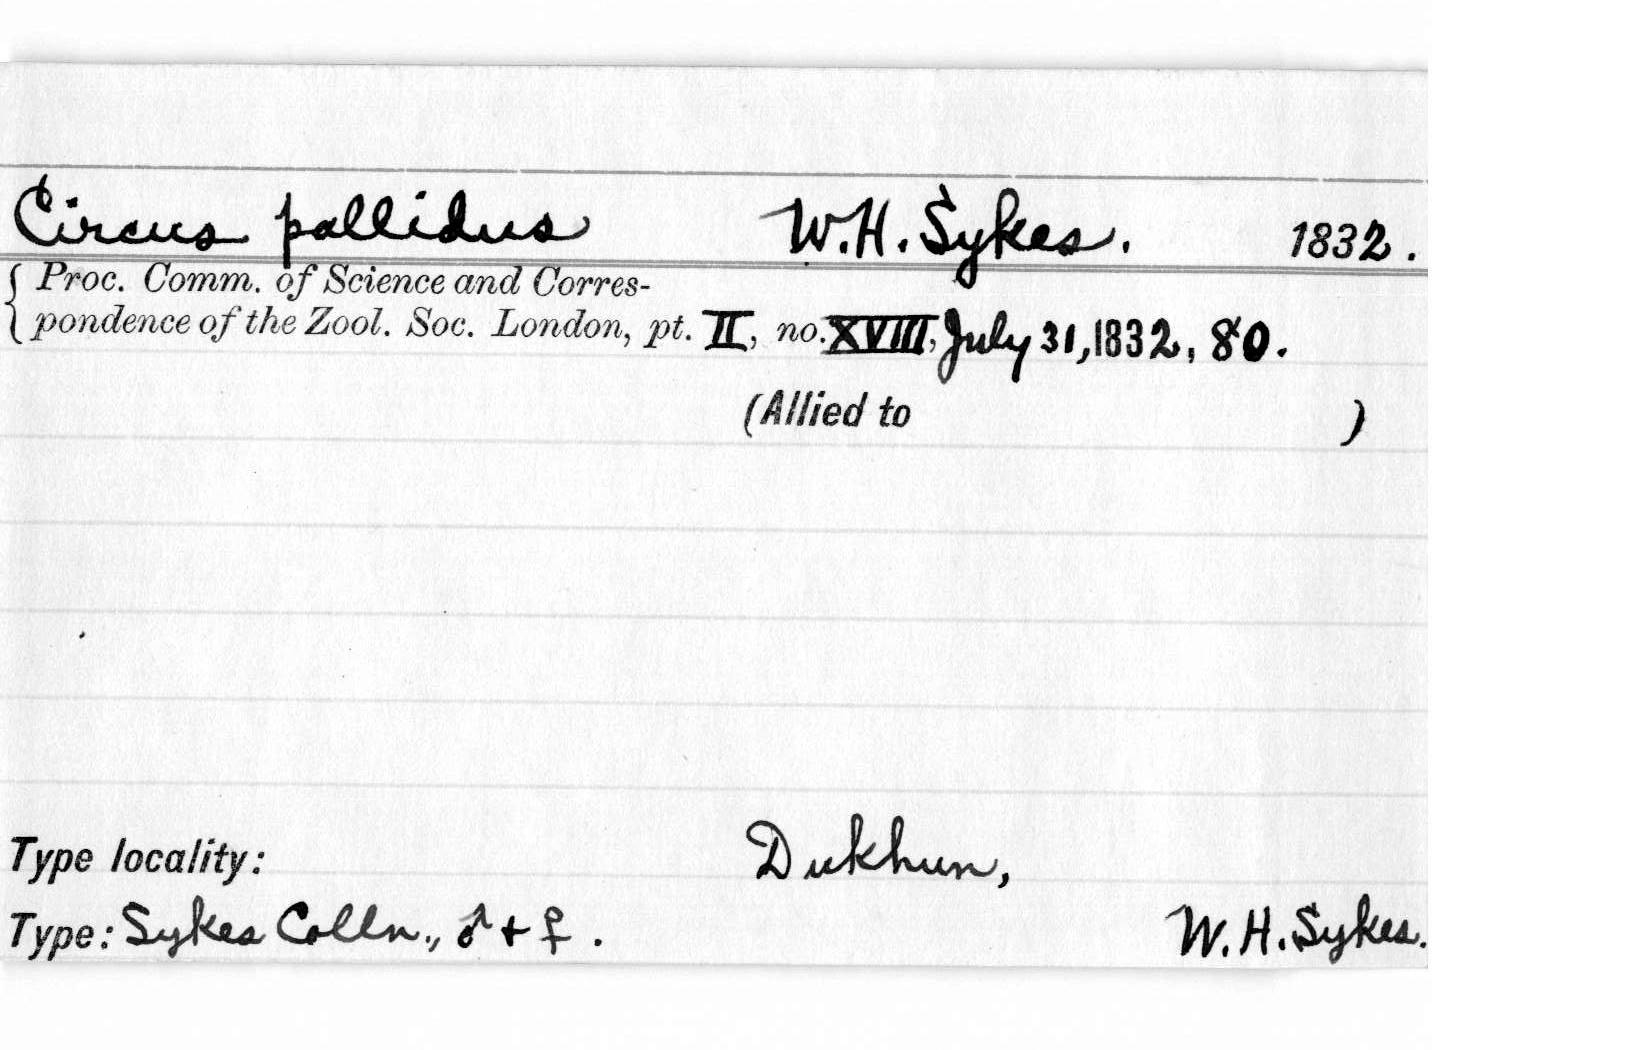 Circus pallidus W.H. Sykes. 1832.
{ Proc. Comm. of Science and Corres-
pondence of the Zool. Soc. London, pt. II, no. XVIII, July 31, 1832, 80.
(Allied to )
Type locality: Dukhun,
Type: Sykes Colln., ♂ + ♀. W. H. Sykes.